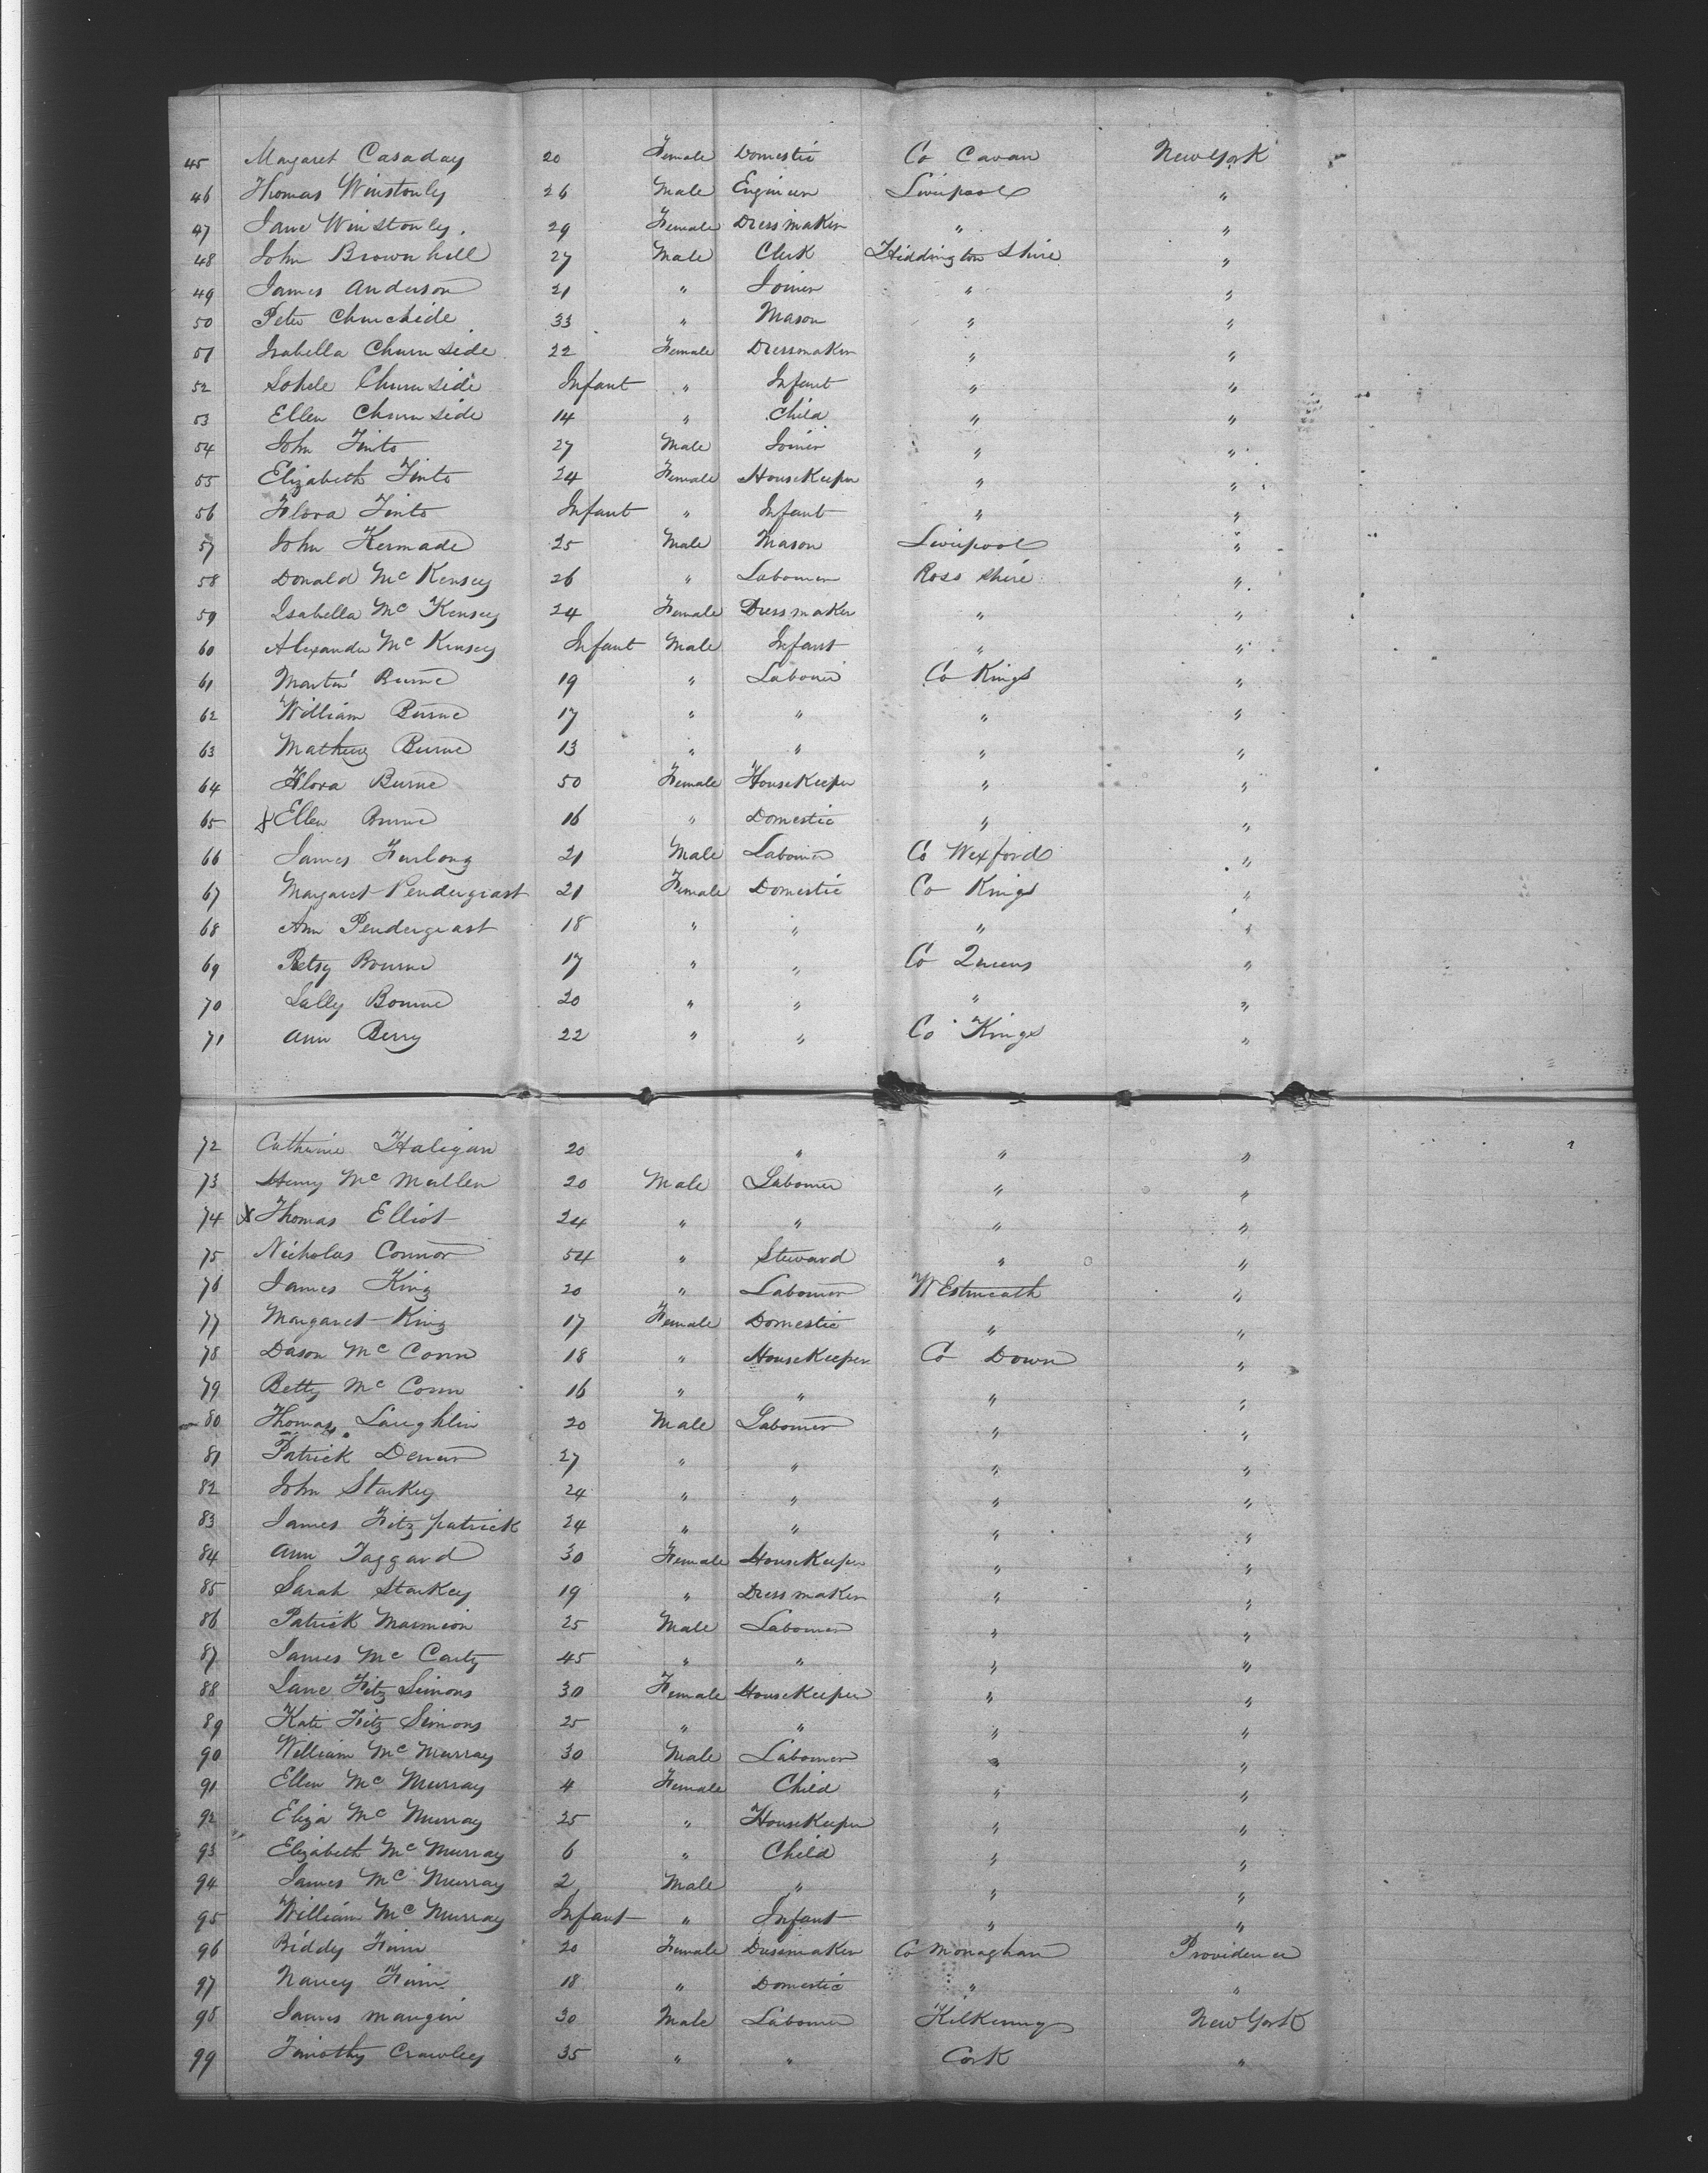 45 Margaret Casaday 20 Female Domestic Co Cavan New York
46 Thomas Winstonly 26 Male Engineer Liverpool "
47 Jane Winstonly. 29 Female Dressmaker " "
48 John Brownhill 27 Male Clerk Hiddington Shire "
49 James Anderson 21 " Joiner " "
50 Peter 33 " Mason " "
51 Isabella Churnside 22 Female Dressmaker " "
52 Churnside Infant " Infant " "
53 Ellen Churnside 14 " Child " "
54 John Tinto 27 Male Joiner " "
55 Elizabeth Tinto 24 Female HouseKeeper " "
56 Flora Tinto Infant " Infant " "
57 John Kermade 25 Male Mason Liverpool "
58 Donald Mc Kensey 26 " Labourer Ross Shire "
59 Isabella Mc Kensey 24 Female Dressmaker " "
60 Alexander Mc Kensey Infant Male Infant " "
61 Martin Burne 19 " Labourer Co Kings "
62 William Burne 17 " " " "
63 Mathew Burne 13 " " " "
64 Flora Burne 50 Female HouseKeeper " "
65 x Ellen Burne 16 " Domestic " "
66 James Furlong 21 Male Labourer Co Wexford "
67 Margaret Pendergrast 21 Female Domestic Co Kings "
68 Ann Pendergrast 18 " " " "
69 Betsy Bourne 17 " " Co Queens "
70 Sally Bourne 20 " " " "
71 Ann Berry 22 " " Co Kings "
72 Catherine Haligan 20 " " "
73 Henry Mc Mullen 20 Male Labourer " "
74 x Thomas Elliot 24 " " " "
75 Nicholas Connor 54 " Steward " "
76 James King 20 " Labourer WEstmeath "
77 Margaret King 17 Female Domestic " "
78 Dason Mc Conn 18 " HouseKeeper Co Down "
79 Betty Mc Conn 16 " " " "
80 Thomas Laughlin 20 Male Labourer " "
81 Patrick 27 " " " "
82 John Starkey 24 " " " "
83 James Fitzpatrick 24 " " " "
84 Ann Taggard 30 Female HouseKeeper " "
85 Sarah Starkey 19 " Dressmaker " "
86 Patrick Marmion 25 Male Labourer " "
87 James Mc Carty 45 " " " "
88 Jane Fitz Simons 30 Female HouseKeeper " "
89 Kate Fitz Simons 25 " " " "
90 William Mc Murray 30 Male Labourer " "
91 Ellen Mc Murray 4 Female Child " "
92 Eliza Mc Murray 25 " HouseKeeper " "
93 Elizabeth Mc Murray 6 " Child " "
94 James Mc Murray 2 Male " " "
95 William Mc Murray Infant " Infant " "
96 Biddy Finn 20 Female Dressmaker Co Monaghan Providence
97 Nancy Finn 18 " Domestic " "
98 James Mangin 30 Male Labourer Kilkenny New York
99 Timothy Crawley 35 " " Cork "